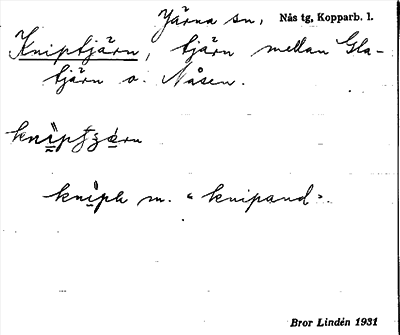 Järna sn, Nås tg, Kopparb. l.
Kniptjärn, tjärn mellan Gla-
tjärn o. Nåsen.
knip m. "knipand".
Bror Lindén 1931